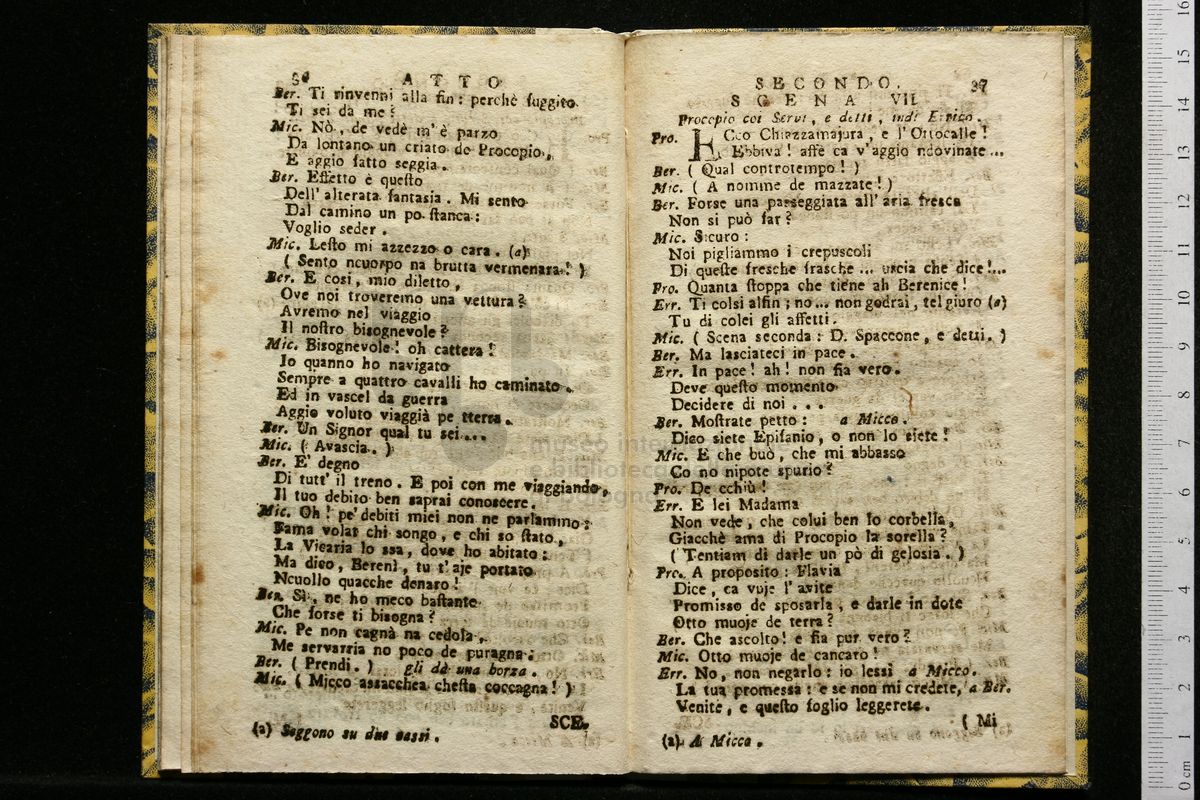 A T T O
Ber. Ti rinvenni alla fin : perchè fuggito
Ti sei da me ?
Mic. Nò, de vedè m'è parzo
Da lontano un criato de Procopio,
E aggio fatto seggia.
Ber. Effetto è questo
Dell' alterata fantasia. Mi sento
Dal camino un po stanca :
Voglio seder.
Mic. Lesto mi azzezzo o cara. (a)
( Sento ncuorpo na brutta vermenara ! )
Ber. E così, mio diletto,
Ove noi troveremo una vettura ?
Avremo nel viaggio
Il nostro bisognevole ?
Mic. Bisognevole ! oh cattera !
Io quanno ho navigato
Sempre a quattro cavalli ho caminato.
Ed in vascel da guerra
Aggio voluto viaggià pe tterra.
Ber. Un Signor qual tu sei ....
Mic. ( Avascia. )
Ber. E' degno
Di tutt' il treno. E poi con me viaggiando,
Il tuo debito ben saprai conoscere.
Mic. Oh ! pe' debiti miei non ne parlammo :
Fama volat chi songo, e chi so stato,
La Vicaria lo ssa, dove ho abitato :
Ma dico, Berenì, tu t' aje portato
Ncuollo quacche denaro !
Ber. Sì, ne ho meco bastante
Che forse ti bisogna ?
Mic. Pe non cagnà na cedola,
Me servarria no poco de puragna.
Ber. ( Prendi. ) gli dà una borza.
Mic. ( Micco assacchea chesta coccagna ! )
SCE.
(a) Seggono su due sassi.
SECONDO. 37
S C E N A VII.
Procopio coi Servi, e detti, indi Errico.
Pro. ECco Chiazzamajura, e l' Ottocalle !
Ebbiva ! affè ca v'aggio ndovinate ...
Ber. ( Qual controtempo ! )
Mic. ( A nomme de mazzate ! )
Ber. Forse una passeggiata all' aria fresca
Non si può far ?
Mic. Sicuro :
Noi pigliammo i crepuscoli
Di queste fresche frasche ... uscia che dice !...
Pro. Quanta stoppa che tiene ah Berenice !
Err. Ti colsi alfin ; no ... non godrai, tel giuro (a)
Tu di colei gli affetti.
Mic. ( Scena seconda : D. Spaccone, e detti. )
Ber. Ma lasciateci in pace.
Err. In pace ! ah ! non fia vero.
Deve questo momento
Decidere di noi . . .
Ber. Mostrate petto : a Micco.
Dico siete Epifanio, o non lo siete !
Mic. E che buò, che mi abbasso
Co no nipote spurio ?
Pro. De cchiù !
Err. E lei Madama
Non vede, che colui ben lo corbella,
Giacchè ama di Procopio la sorella ?
( Tentiam di darle un pò di gelosia. )
Pro. A proposito : Flavia
Dice, ca vuje l' avite
Promisso de sposarla, e darle in dote
Otto muoje de terra ?
Ber. Che ascolto ! e fia pur vero ?
Mic. Otto muoje de cancaro !
Err. No, non negarlo : io lessi a Micco.
La tua promessa : e se non mi credete, a Ber.
Venite, e questo foglio leggerete.
( Mi
(a) A Micco.